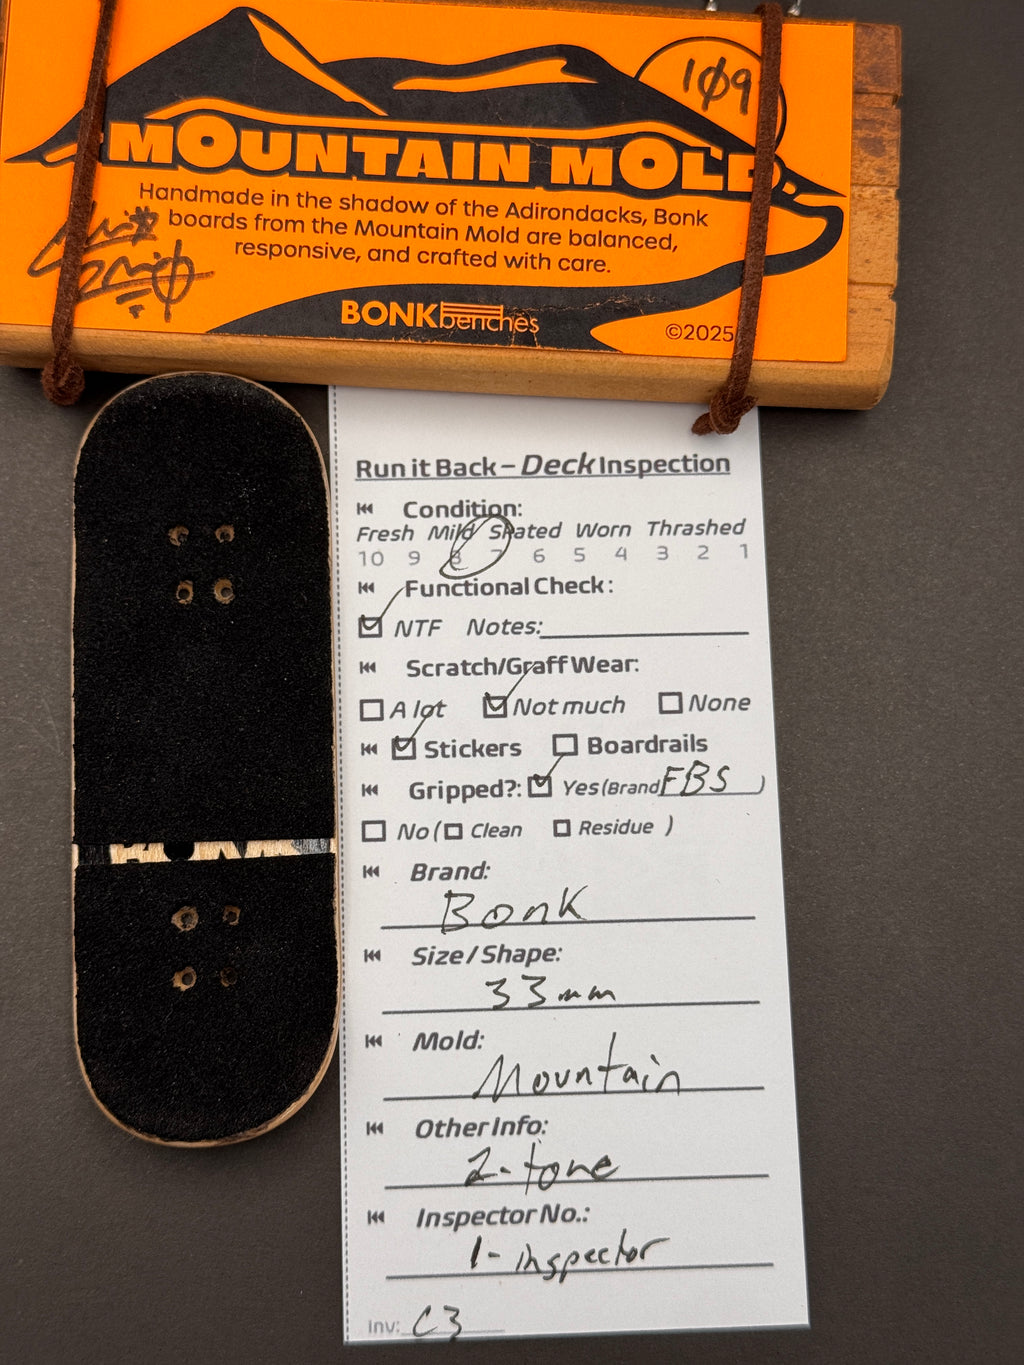 109
MOUNTAIN MOLD
Handmade in the shadow of the Adirondacks, Bonk
boards from the Mountain Mold are balanced,
responsive, and crafted with care.
BONK benches
©2025
Run it Back – Deck Inspection
Condition:
Fresh Mild Skated Worn Thrashed
10 9 8 7 6 5 4 3 2 1
Functional Check:
NTF Notes:
Scratch/Graff Wear:
A lot Not much None
Stickers Boardrails
Gripped?: Yes (Brand FBS )
No ( Clean Residue )
Brand:
Bonk
Size / Shape:
33mm
Mold:
Mountain
Other Info:
2-tone
Inspector No.:
1- inspector
Inv: C3
BONK